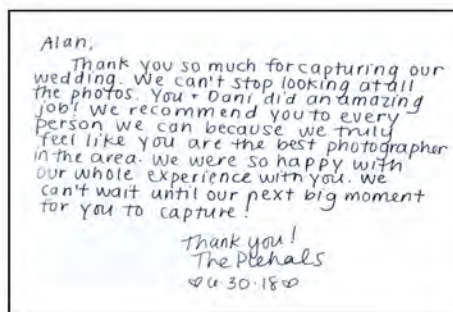 Alan,
Thank you so much for capturing our
wedding. We can't stop looking at all
the photos. You + Dani did an amazing
job! We recommend you to every
person we can because we truly
feel like you are the best photographer
in the area. We were so happy with
our whole experience with you. We
can't wait until our next big moment
for you to capture!
Thank you!
The
30.18